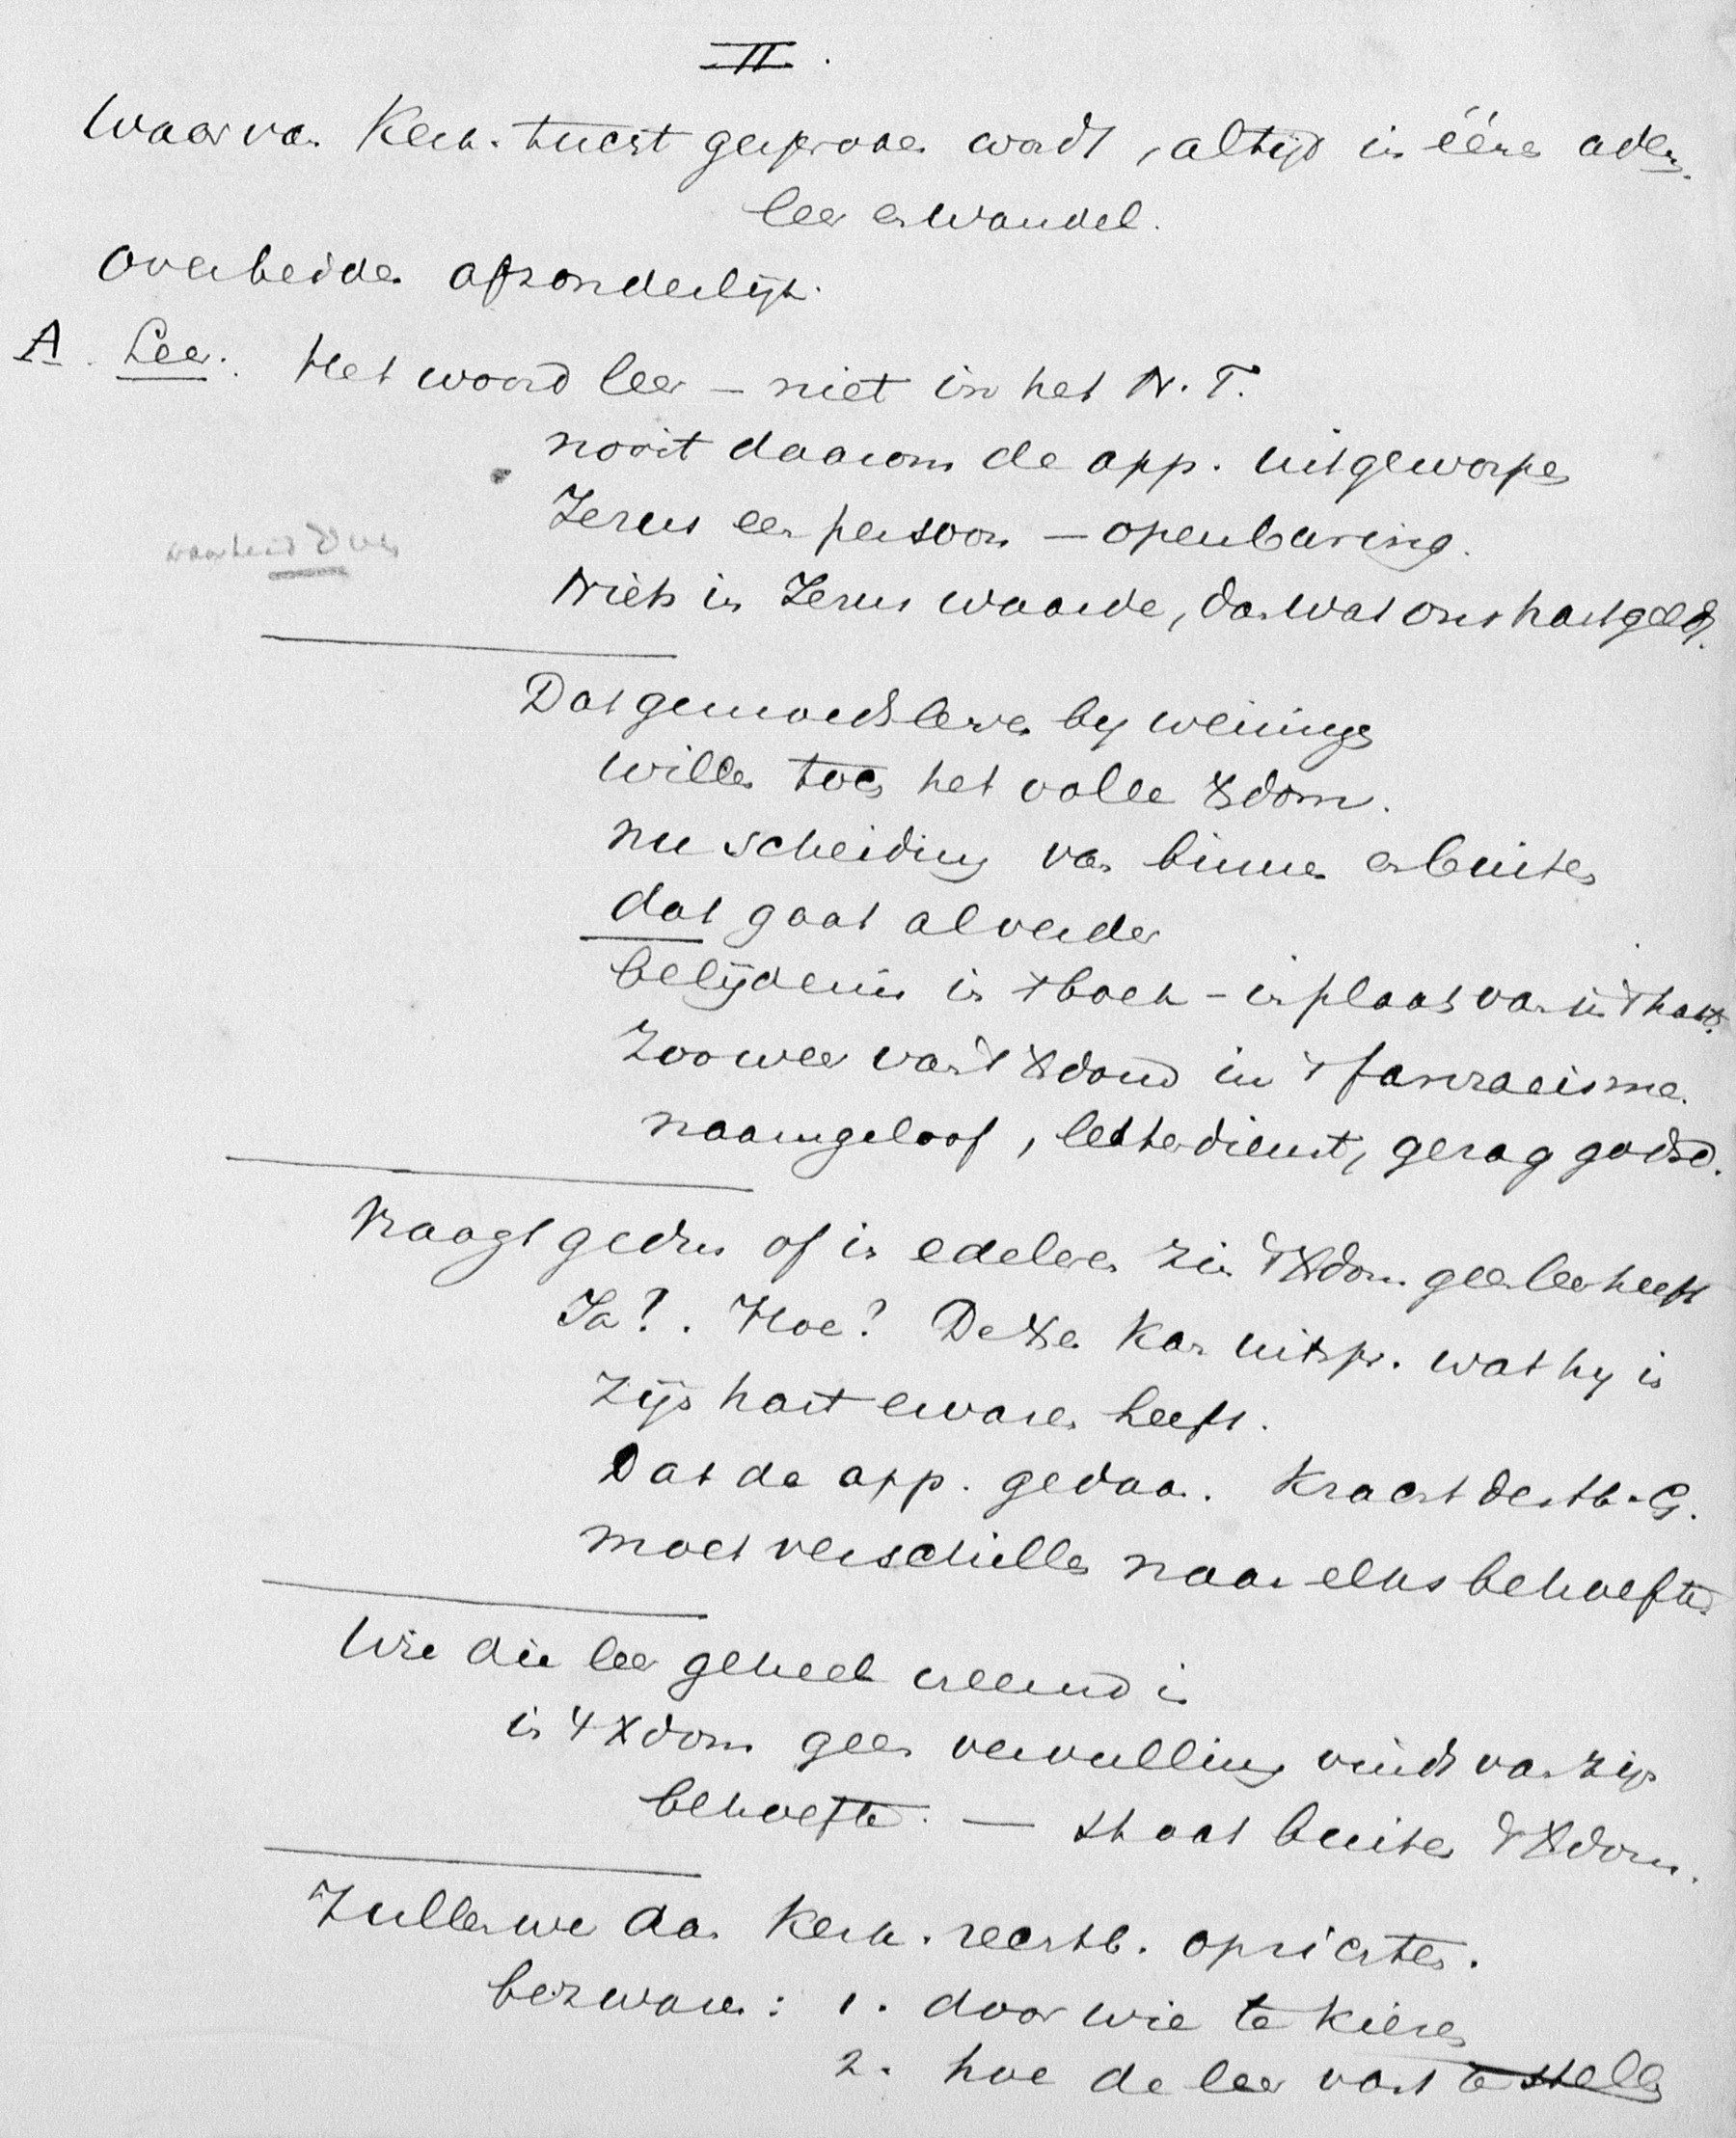 II.
Waar van Kerk. tucht gesproken wordt, altijd in éénen adem.
leer en wandel.
Over beiden afzonderlijk.
A. Leer. Het woord leer – niet in het N. T.
nooit daarom de app. uitgeworpen
Jezus een persoon – openbaring.
waarheid doen
Niets in Jezus waarde, dan wat ons hart geldt.
Dat gemoedsleven by weinigen
willen toch het volle Xdom.
nu scheiding van binnen en buiten
dat gaat al verder
belijdenis in 't boek – in plaats van in 't hart.
Zoo weer van 't Xdond in 't farizaeisme.
naamgeloof, letterdienst, gezag godsd.
Vraagt of in edelen zin 't Xdom geen leer heeft
Ja?. Hoe? De Xen kan uitspr. wat hy in
zijn hart ervaren heeft.
Dat de app. gedaan. Kracht des Hb. G.
moet verschillen naar elks behoefte.
Wie die leer geheel vreemd is
in 't Xdom geen vervulling vindt van zijn
behoefte. — staat buiten 't Xdom.
Zullen we dan Kerk. rechtb. oprichten.
bezwaren: 1. door wie te kiezen
2. hoe de leer vast te stellen